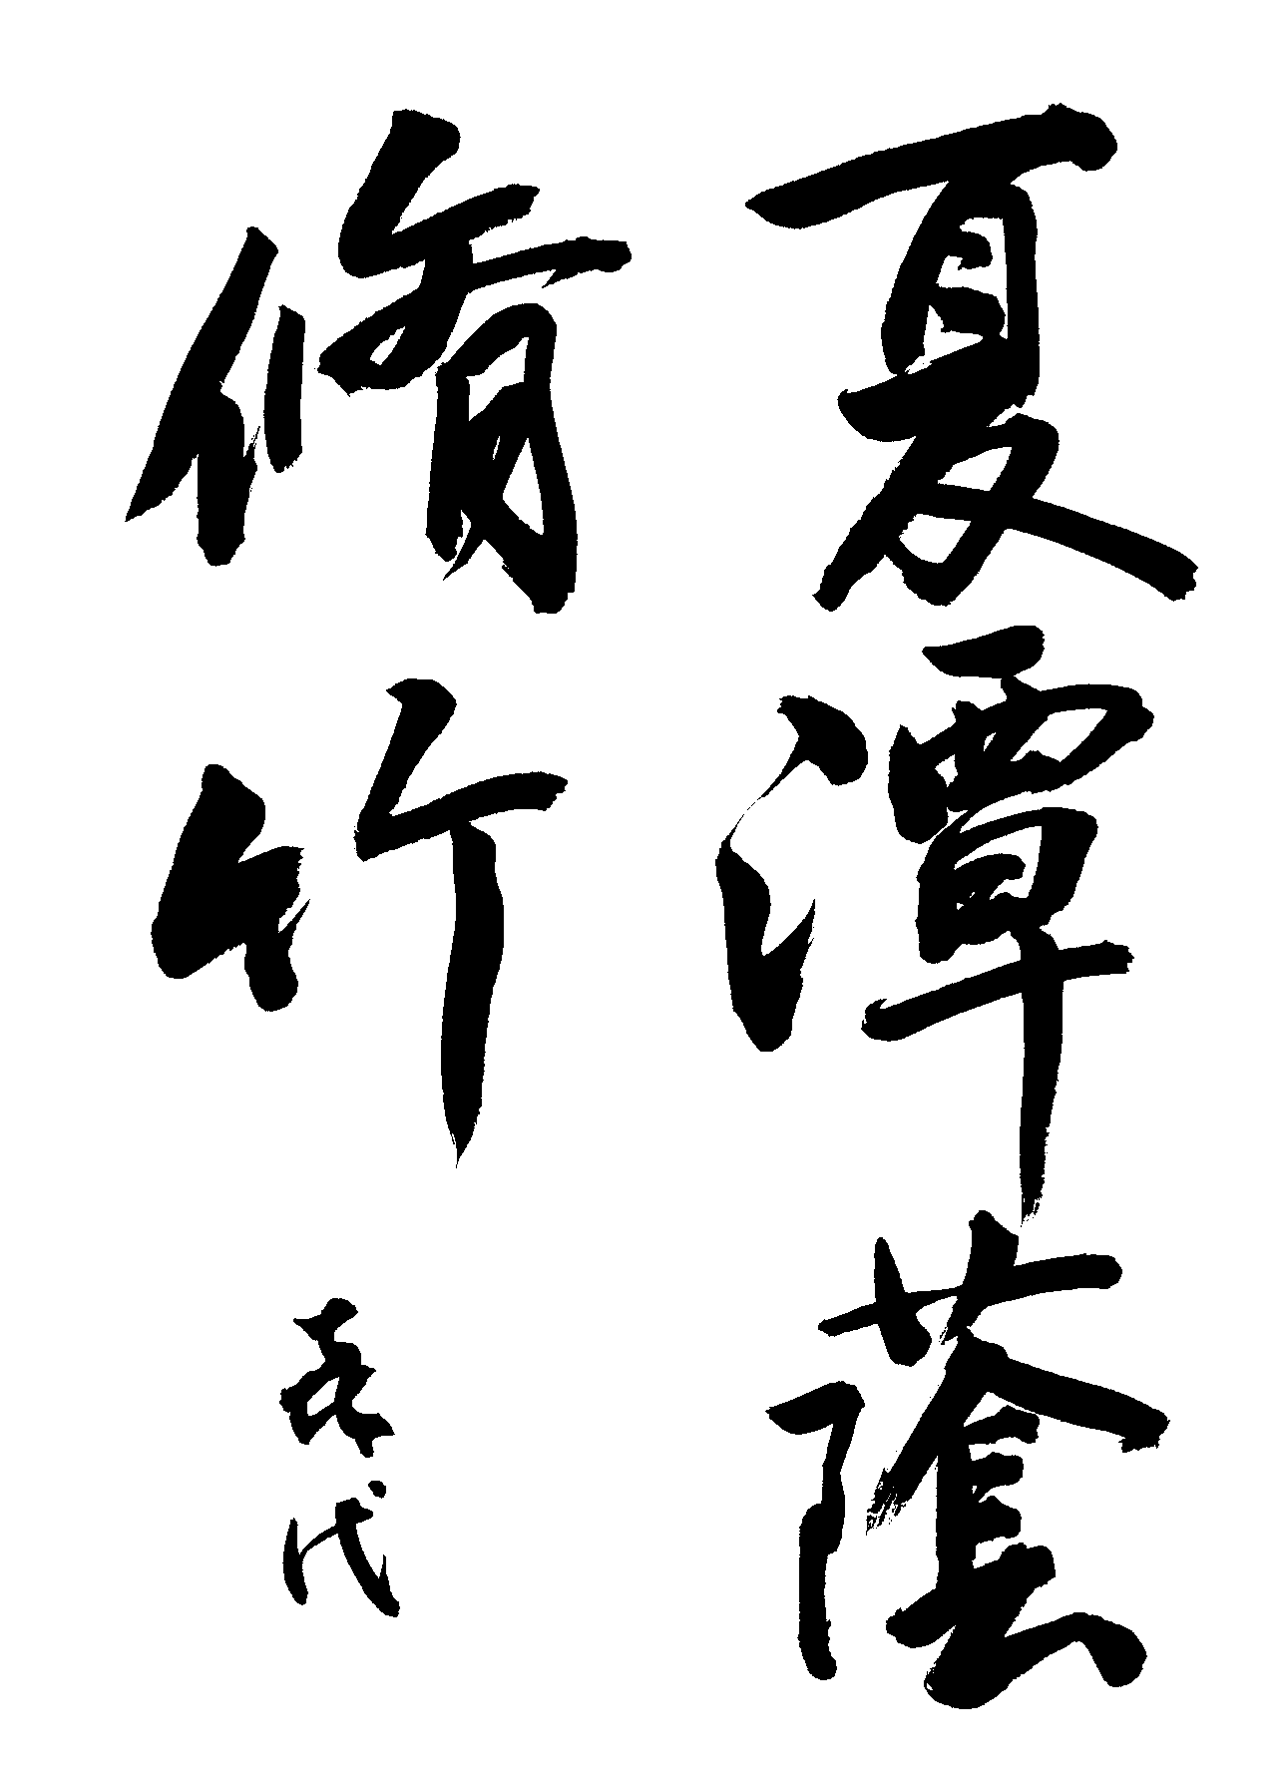 夏潭蔭
脩竹
代